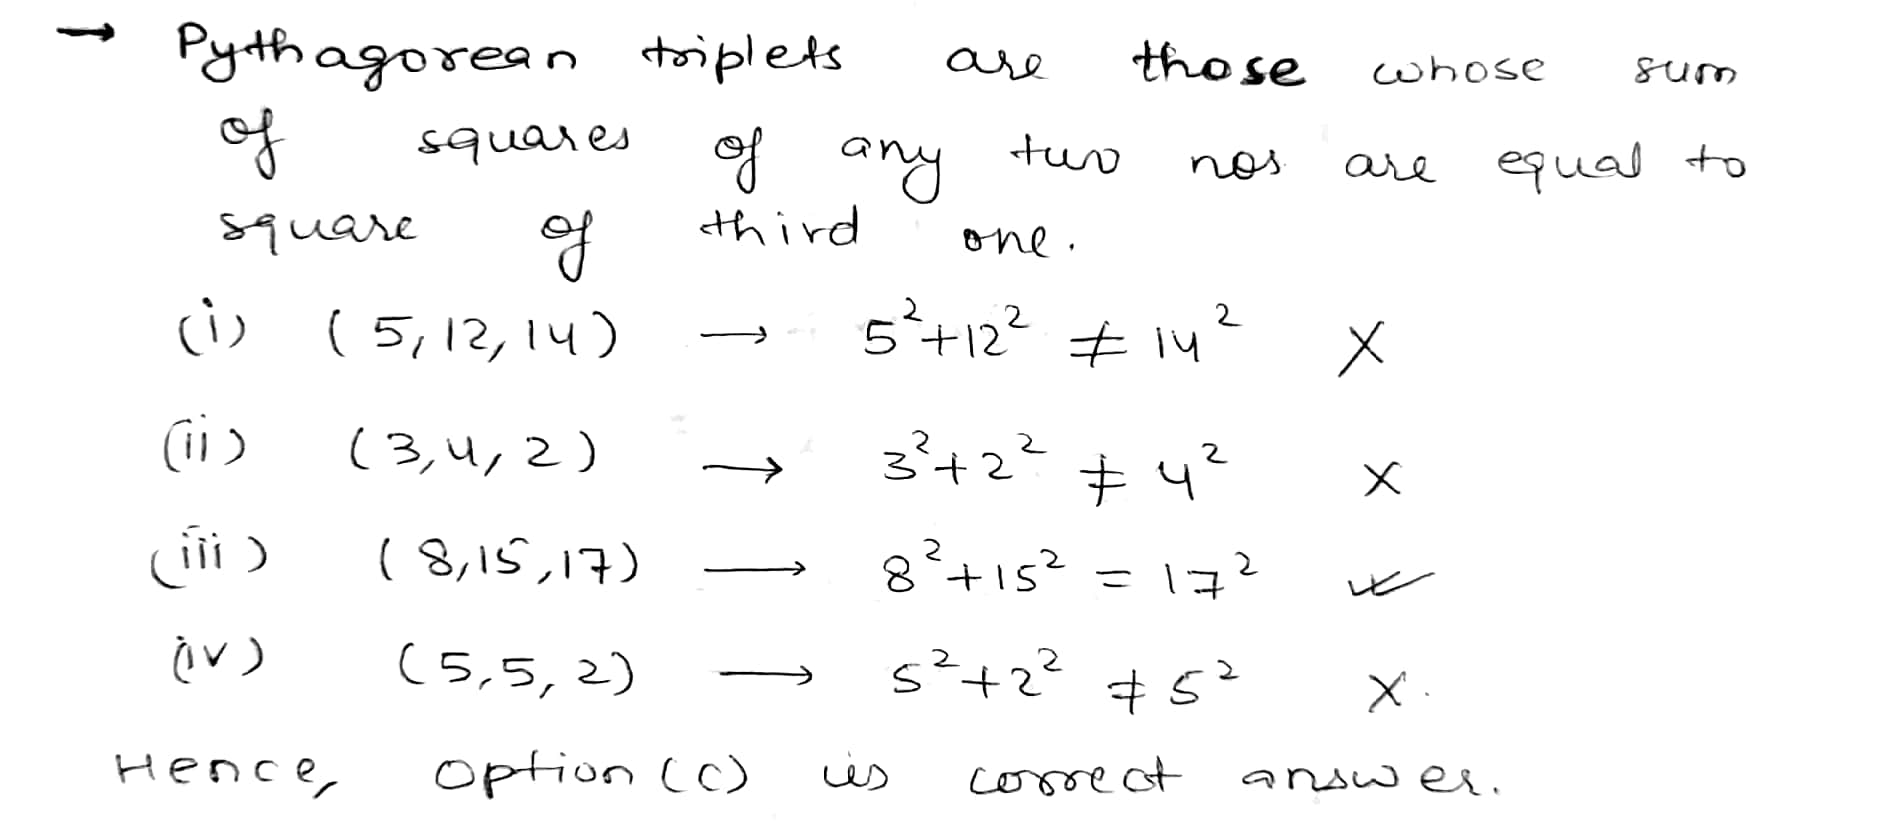 → Pythagorean triplets are those whose sum
of squares of any two nos. are equal to
square of third one.
(i) (5,12,14) → 5²+12² ≠ 14² X
(ii) (3,4,2) → 3²+2² ≠ 4² X
(iii) (8,15,17) → 8²+15² = 17² ✓
(iv) (5,5,2) → 5²+2² ≠ 5² X.
Hence, option (c) is correct answer.